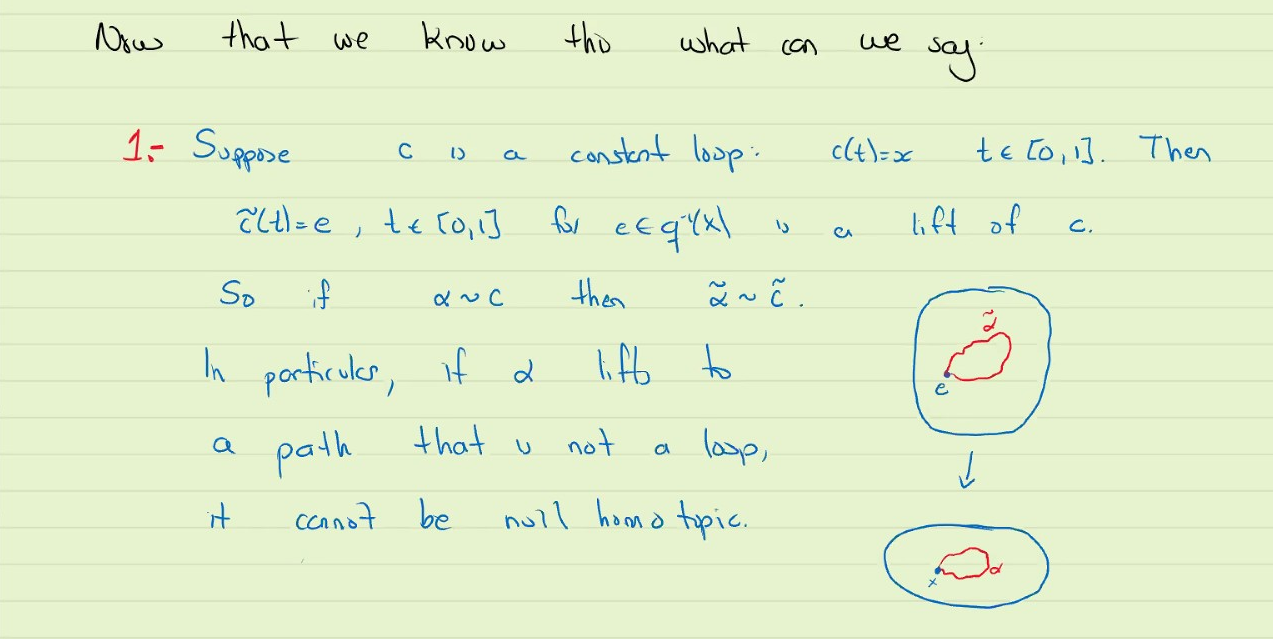 Now that we know this what can we say:
1.- Suppose c is a constant loop: c(t)=x t ∈ [0,1]. Then
c̃(t)=e, t ∈ [0,1] for e ∈ q⁻¹(x) is a lift of c.
So if α ~ c then α̃ ~ c̃.
In particular, if α lifts to
a path that is not a loop,
it cannot be null homotopic.
α̃
e
x α